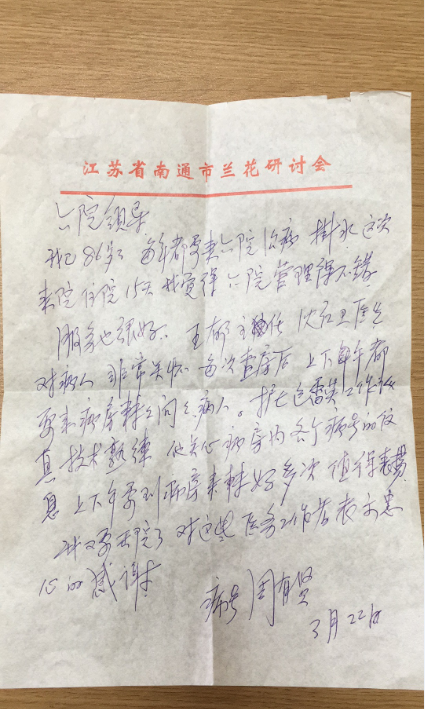 江苏省南通市兰花研讨会
六院领导
我已86岁 每年都要来六院治病 挂水 这次
来院住院15天 我觉得 六院管理得不错
服务也很好. 王郁主任 沈 医生
对病人 非常关心 每次查房后 上下午都
要来病房转转问问病人。护士 工作认
真 技术熟练 他关心病房内各个病号的信
息 上下午要到病房来转好多次 值得表扬
我又要出院了 对这些医务工作者表示衷
心的感谢
病号 周有贤
3月22日